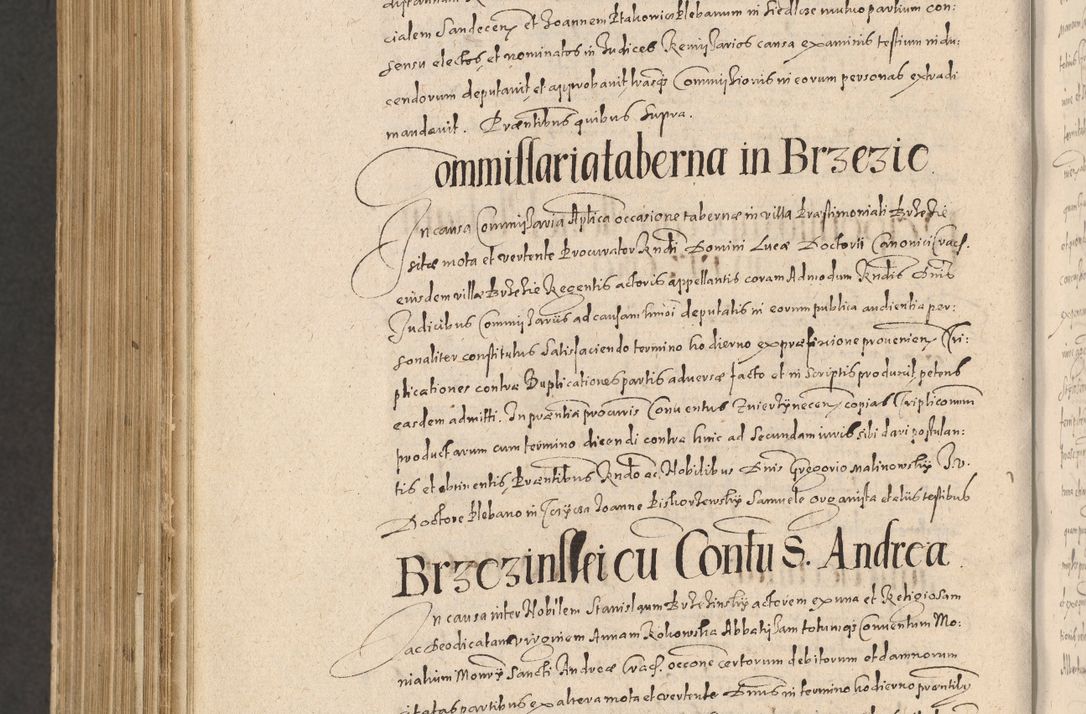 cialem Sandecen et Joannem Ptakowicz Plebanum in Siedlcze mutuo partium con:
sensu electos et nominatos in Judices Remissarios causa examinis testium indu:
cendorum deputavit et approbavit, trasq Commissionis in eorum personas extradi
mandavit. Præntibus quibus supra.
Commissaria taberna in Brzezie
In causa Commissaria Aplica occasione tabernæ in villa Præstimoniali Brzezie
sitæ mota et vertente Procurator Rndi Domini Lucæ Doctorii Canonici Crac.
eiusdem villæ Brzezie Regentis actoris appellantis coram Admodum Rndis Dnis
Judicibus Commissariis ad causam hmoi deputatis in eorum publica audientia per:
sonaliter constitutus satisfaciendo termino hodierno ex præfixione provenien Tri:
plicationes contra Duplicationes partis adversæ facto et in scriptis produxit, petens
easdem admitti. In præntia procuris Conventus Zwierzynecen copias Tripliconum
productarum cum termino dicendi contra hinc ad secundam iuris sibi dari postulan:
tis et obtinentis, Præntibus Rndo ac Nobilibus Dnis Gregorio Malinowsky J.V.
Doctore Plebano in Joanne Piskorzewsky Samuele Organista et aliis testibus
Brzezinskei cu Contu S. Andrea
In causa inter Nobilem Stanislaum Brzezinsky actorem ex una et Religiosam
ac Deodicatam virginem Annam Kokowska Abbatissam totumq Conventum Mo:
nialium Monry Sancti Andreæ Crac. occone certorum debitorum et damnorum
citatas partibus ex altera mota et vertente Dnus in termino hodierno præntibus